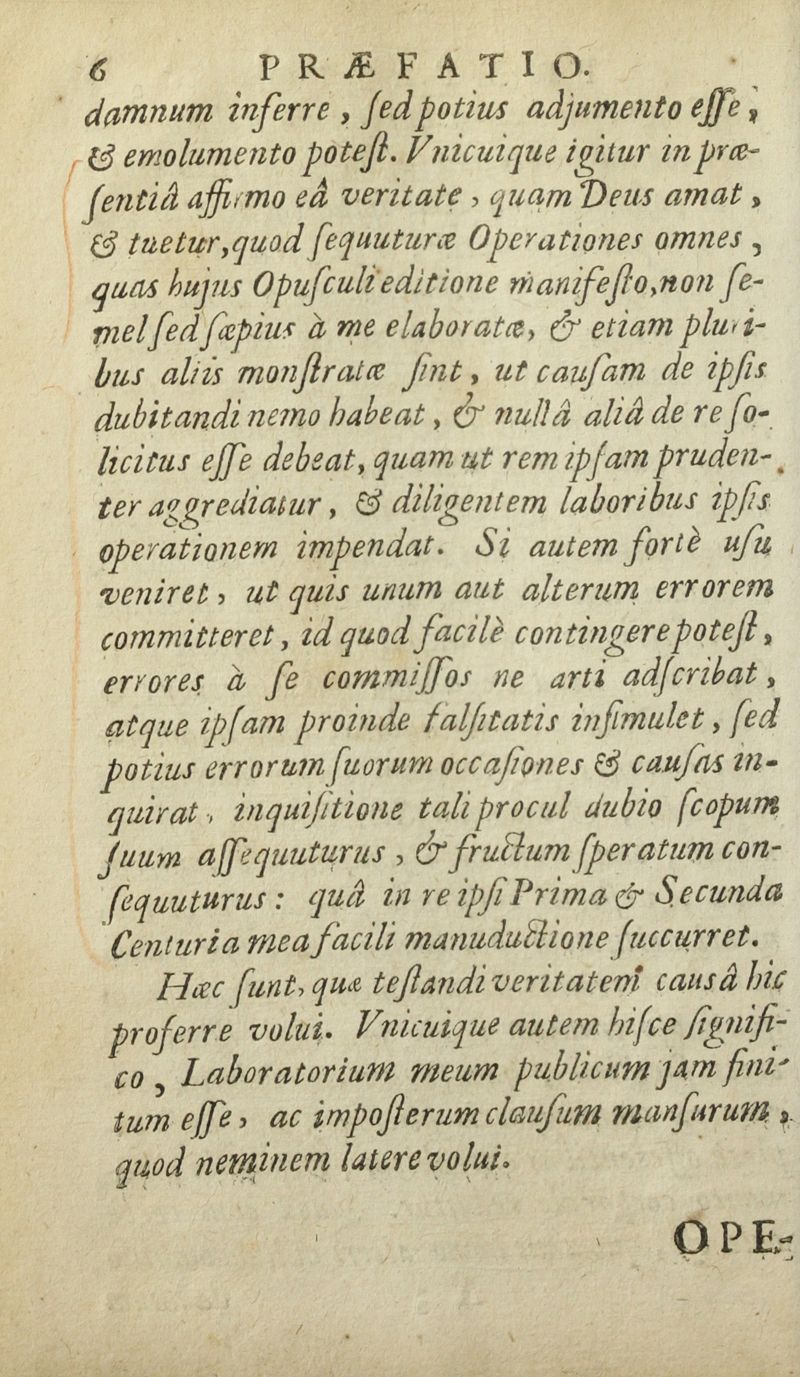 6 PRÆFATIO.
damnum inferre, ſed potius adjumento eſſe,
& emolumento poteſt. Vnicuique igitur in præ-
ſentiâ affirmo eâ veritate, quam Deus amat,
& tuetur, quod ſequuturæ Operationes omnes,
quas hujus Opuſculi editione manifeſto, non ſe-
mel ſed ſæpius à me elaboratæ, & etiam pluri-
bus aliis monſtratæ ſint, ut cauſam de ipſis
dubitandi nemo habeat, & nullâ aliâ de re ſo-
licitus eſſe debeat, quam ut rem ipſam pruden-
ter aggrediatur, & diligentem laboribus ipſis
operationem impendat. Si autem fortè uſu
veniret, ut quis unum aut alterum errorem
committeret, id quod facilè contingere poteſt,
errores à ſe commiſſos ne arti adſcribat,
atque ipſam proinde falſitatis inſimulet, ſed
potius errorum ſuorum occaſiones & cauſas in-
quirat, inquiſitione tali procul dubio ſcopum
ſuum aſſequuturus, & fructum ſperatum con-
ſequuturus: quâ in re ipſi Prima & Secunda
Centuria mea facili manuductione ſuccurret.
Hæc ſunt, quæ teſtandi veritatem causâ hic
proferre volui. Vnicuique autem hiſce ſignifi-
co, Laboratorium meum publicum jam fini-
tum eſſe, ac impoſterum clauſum manſurum,
quod neminem latere volui.
OPE-